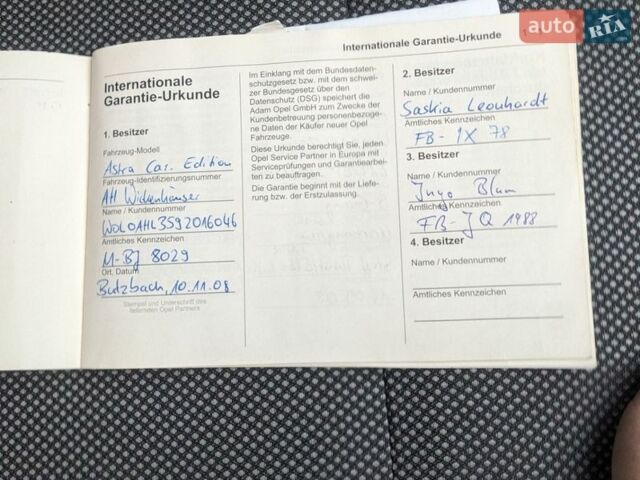 auto RIA
Internationale Garantie-Urkunde
Internationale
Garantie-Urkunde
1. Besitzer
Fahrzeug-Modell
Astra Car. Edition
Fahrzeug-Identifizierungsnummer
AH Wickenhäuser
Name / Kundennummer
W0L0AHL3592016046
Amtliches Kennzeichen
M-BJ 8029
Ort, Datum
Butzbach, 10.11.08
Stempel und Unterschrift des
liefernden Opel Partners
Im Einklang mit dem Bundesdaten-
schutzgesetz bzw. mit dem schwei-
zer Bundesgesetz über den
Datenschutz (DSG) speichert die
Adam Opel GmbH zum Zwecke der
Kundenbetreuung personenbezoge-
ne Daten der Käufer neuer Opel
Fahrzeuge.
Diese Urkunde berechtigt Sie, jeden
Opel Service Partner in Europa mit
Serviceprüfungen und Garantiearbei-
ten zu beauftragen.
Die Garantie beginnt mit der Liefe-
rung bzw. der Erstzulassung.
2. Besitzer
Name / Kundennummer
Saskia Leonhardt
Amtliches Kennzeichen
FB-IX 78
3. Besitzer
Name / Kundennummer
Ingo Blum
Amtliches Kennzeichen
FB-JQ 1988
4. Besitzer
Name / Kundennummer
Amtliches Kennzeichen